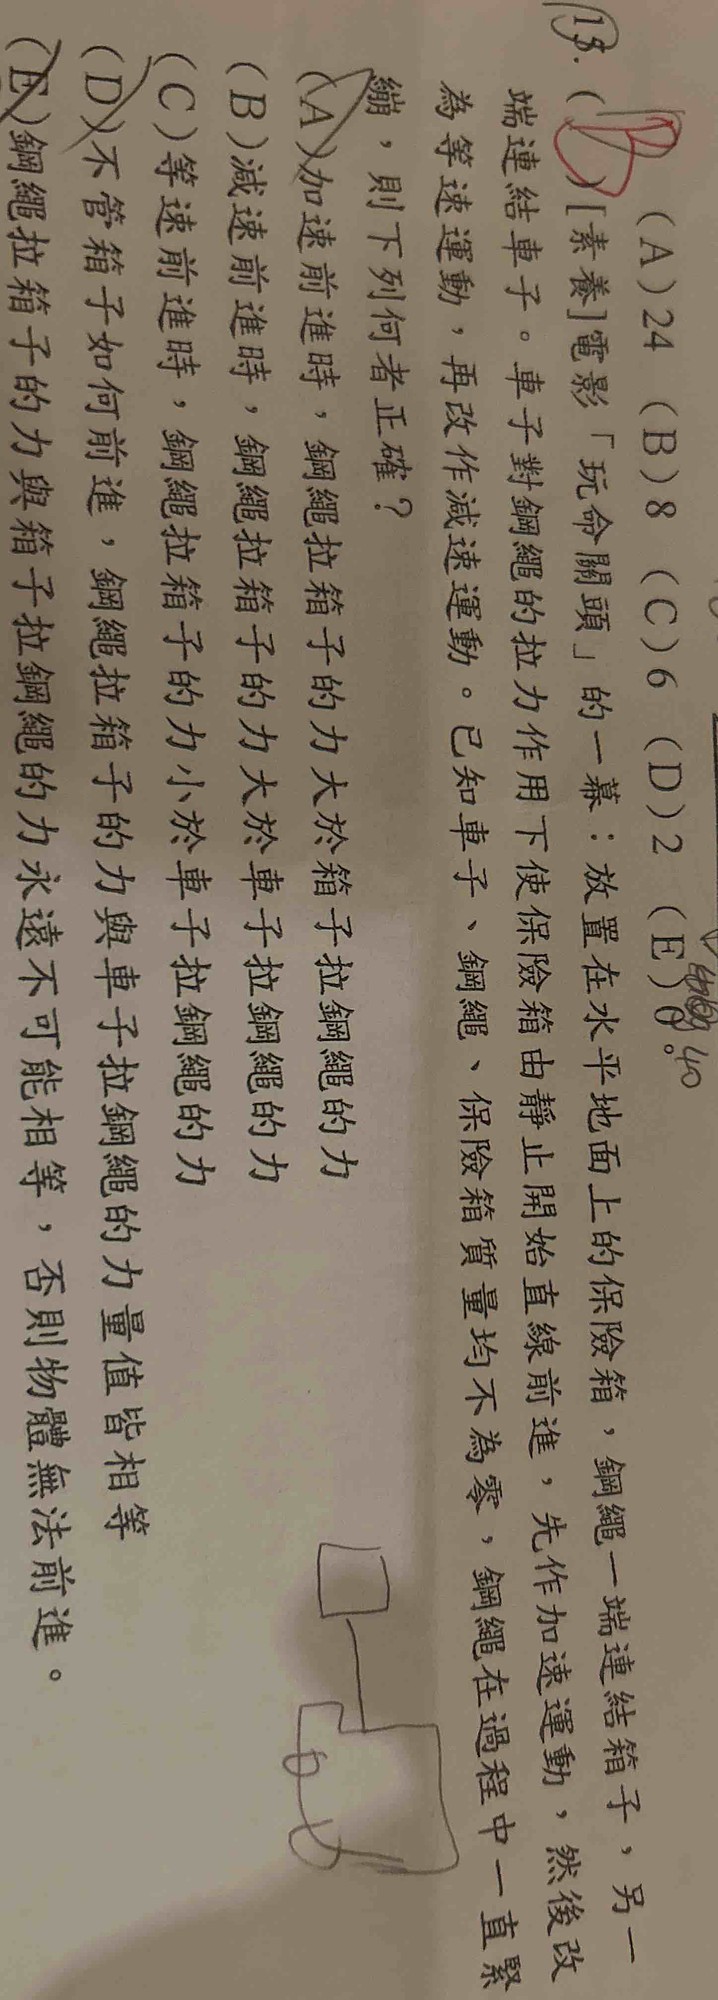 (A)24 (B)8 (C)6 (D)2 (E)0。
40
13. ( B )[素養]電影「玩命關頭」的一幕：放置在水平地面上的保險箱，鋼繩一端連結箱子，另一
端連結車子。車子對鋼繩的拉力作用下使保險箱由靜止開始直線前進，先作加速運動，然後改
為等速運動，再改作減速運動。已知車子、鋼繩、保險箱質量均不為零，鋼繩在過程中一直緊
繃，則下列何者正確？
(A)加速前進時，鋼繩拉箱子的力大於箱子拉鋼繩的力
(B)減速前進時，鋼繩拉箱子的力大於車子拉鋼繩的力
(C)等速前進時，鋼繩拉箱子的力小於車子拉鋼繩的力
(D)不管箱子如何前進，鋼繩拉箱子的力與車子拉鋼繩的力量值皆相等
(E)鋼繩拉箱子的力與箱子拉鋼繩的力永遠不可能相等，否則物體無法前進。